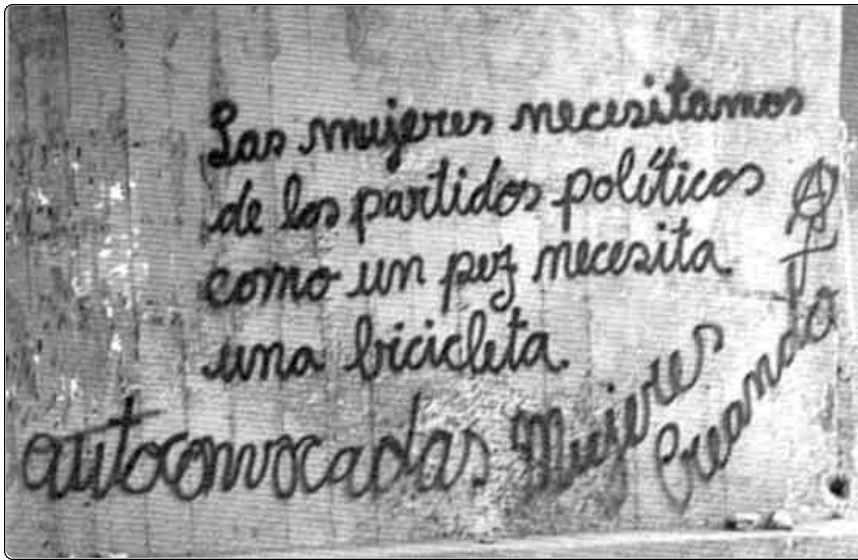 Las mujeres necesitamos
de los partidos políticos
como un pez necesita
una bicicleta.
autoconvocadas Mujeres
Creando